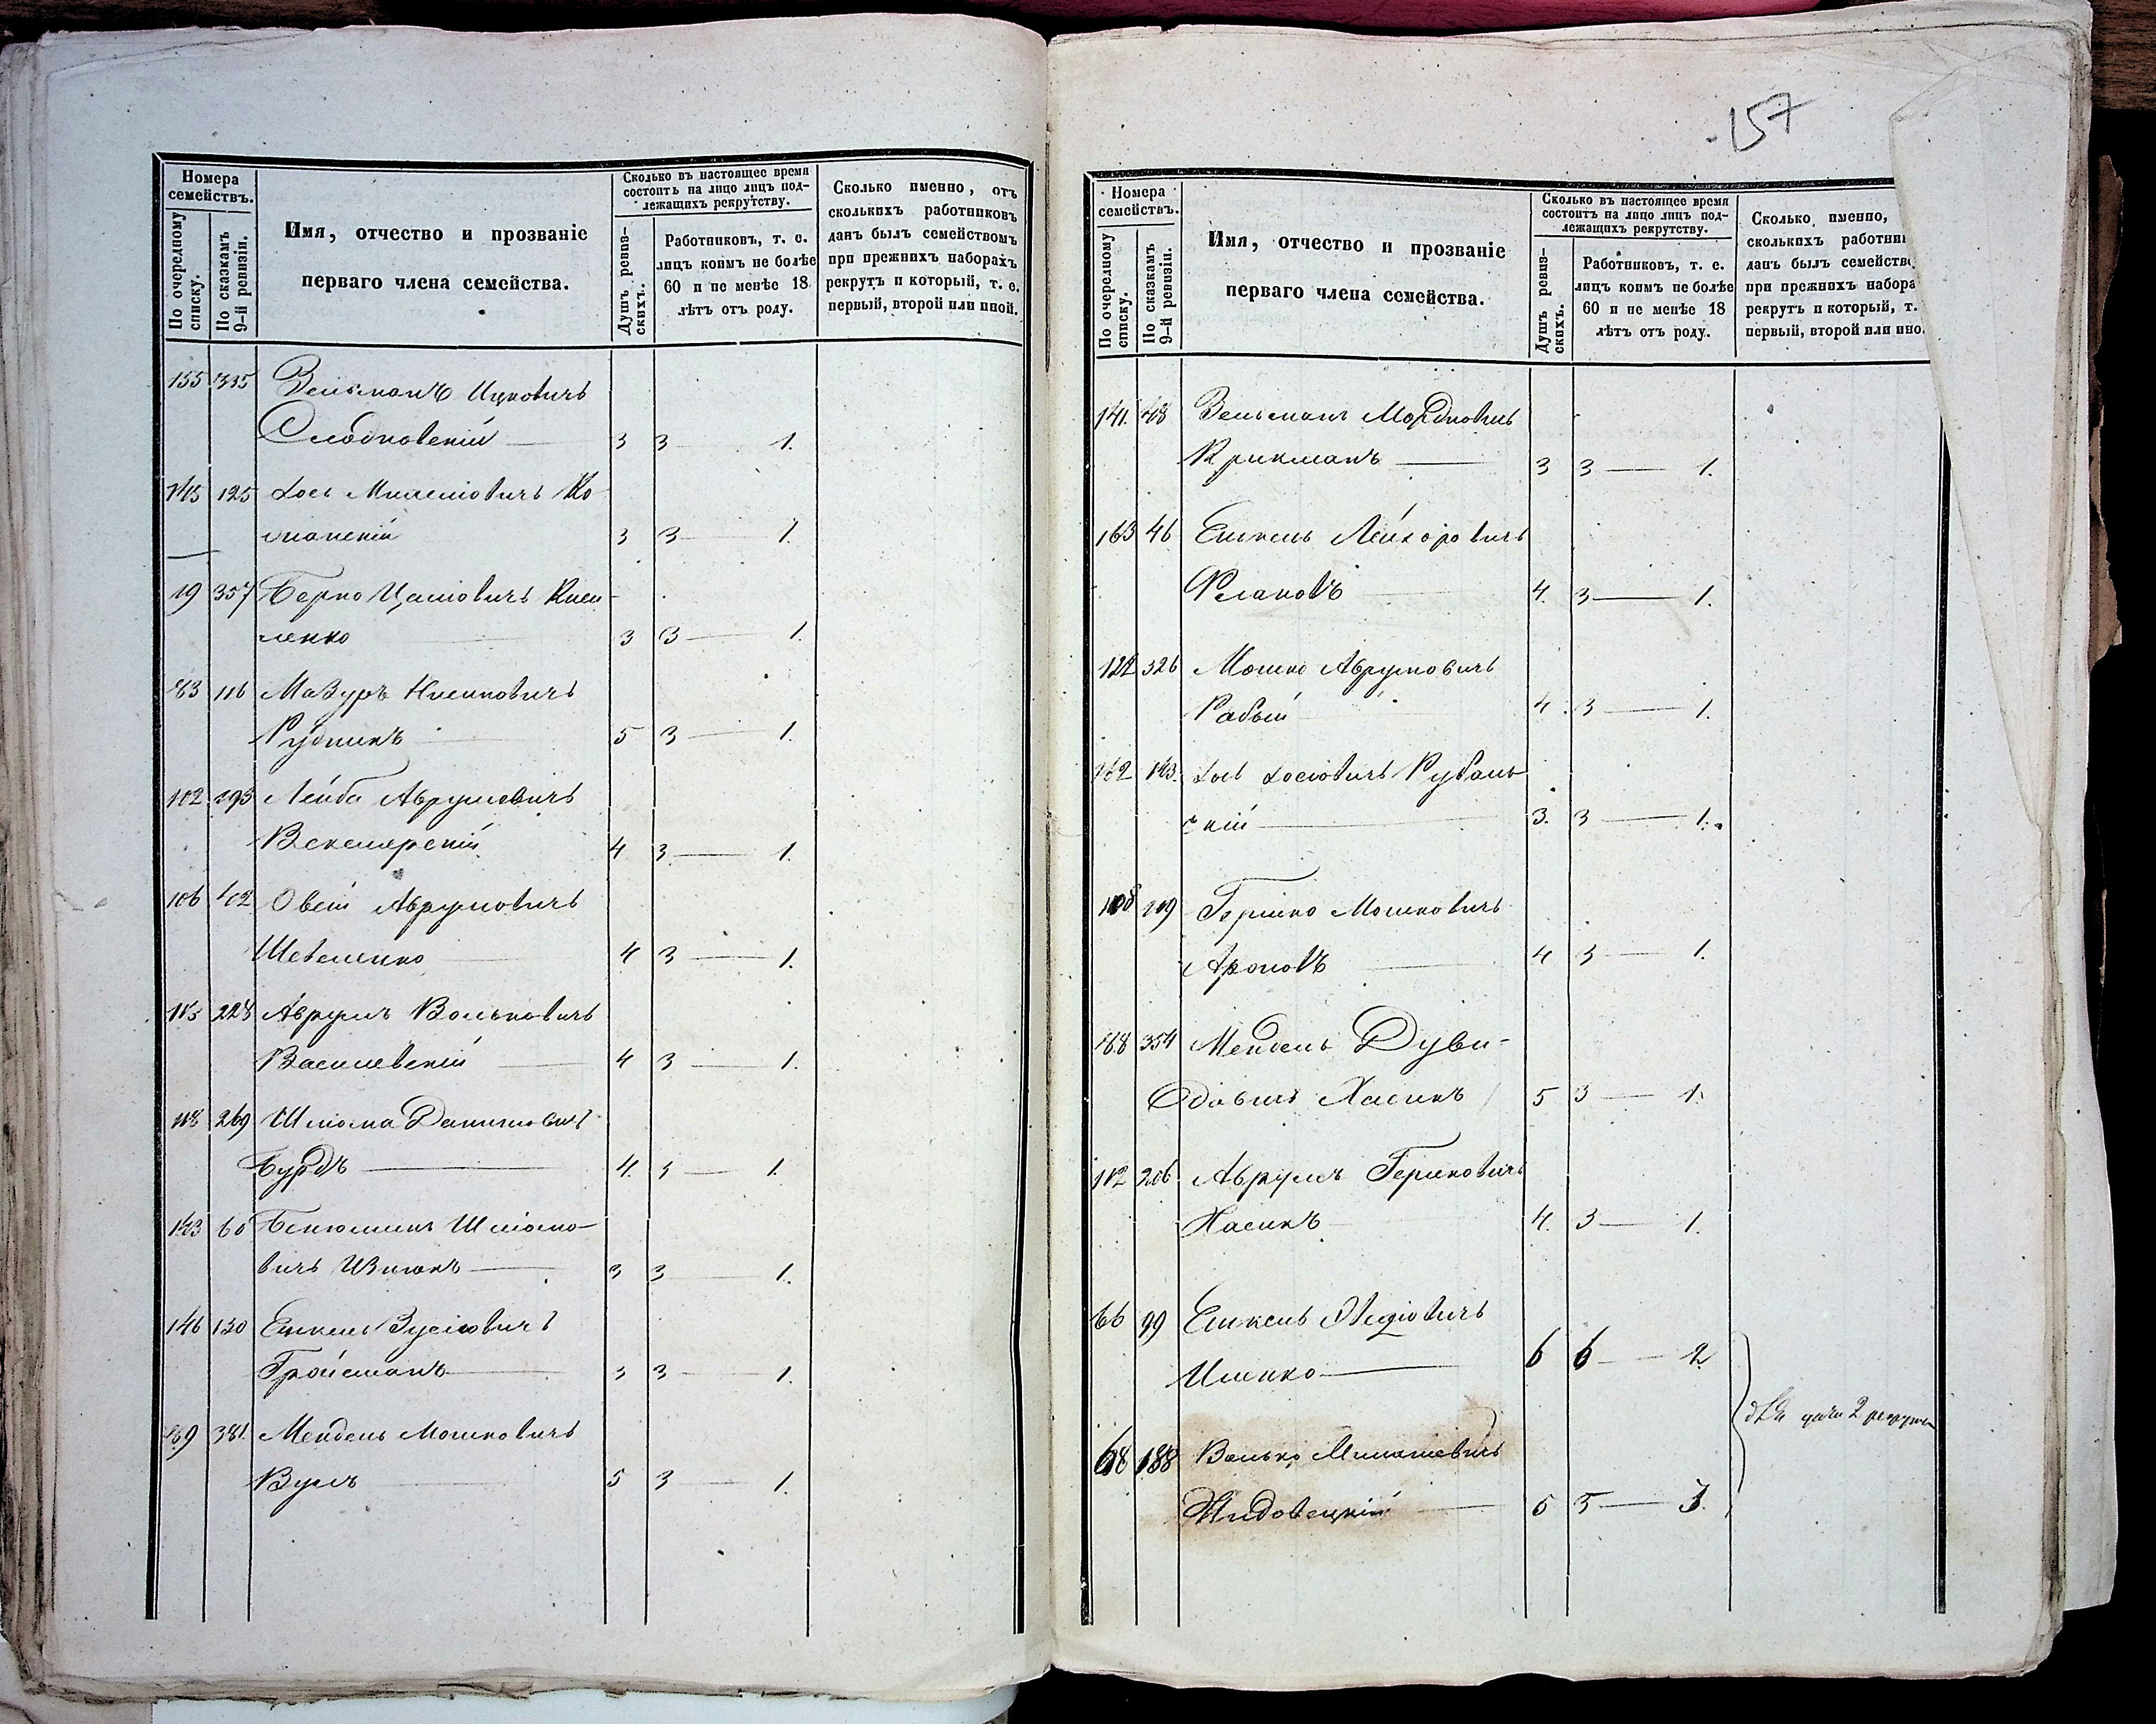 157
Номера
семействъ.
По очередному
списку.
По сказкамъ
9-й ревизіи.
Имя, отчество и прозваніе
перваго члена семейства.
Сколько въ настоящее время
состоитъ на лицо лицъ под-
лежащихъ рекрутству.
Душъ ревиз-
скихъ.
Работниковъ, т. е.
лицъ коимъ не болѣе
60 и не менѣе 18
лѣтъ отъ роду.
Сколько именно, отъ
сколькихъ работниковъ
данъ былъ семействомъ
при прежнихъ наборахъ
рекрутъ и который, т. е.
первый, второй или иной.
155 335 Зельманъ Ицковичъ
Слободковскій 3 3 1.
145 125 Іось
3 3 1.
19 357 Берко
ленко 3 3 1.
83 116 Мазуръ
Рудникъ 5 3 1.
102 293 Лейба Аврумовичъ
Векслярскій 4 3 1.
106 402 Овсій Аврумовичъ
Шевеленко 4 3 1.
115 228 Аврумъ Вольковичъ
Василевскій 4 3 1.
118 269 Шліома Даниловичъ
Бурдъ 4. 3 1.
143 60 Беніоминъ Шліомо-
вичъ 3 3 1.
146 130 Янкель Зусіовичъ
Гройсманъ 3 3 1.
169 381. Мендель Мошковичъ
Вулъ 5 3 1.
Номера
семействъ.
По очередному
списку.
По сказкамъ
9-й ревизіи.
Имя, отчество и прозваніе
перваго члена семейства.
Сколько въ настоящее время
состоитъ на лицо лицъ под-
лежащихъ рекрутству.
Душъ ревиз-
скихъ.
Работниковъ, т. е.
лицъ коимъ не болѣе
60 и не менѣе 18
лѣтъ отъ роду.
Сколько именно,
сколькихъ работни
данъ былъ семейство
при прежнихъ набора
рекрутъ и который, т.
первый, второй или ино.
141. 48 Зельманъ Мордковичъ
Крикманъ 3 3 1.
163 46 Янкель Лейзоровичъ
4. 3 1.
122 326 Мошко Аврумовичъ
Рабый 4. 3 1.
162 193. Іось Іосіовичъ Рубань
скій 3. 3 1.
108 209 Гершко Мошковичъ
Ароновъ 4 3 1.
188 354 Мендель Дуви-
довичъ Хасинъ 5 3 1.
112 206 Аврумъ Гершковичъ
Хасинъ 4. 3 1.
66 99 Янкель
Ишенко 6 6 2
68 188 Волько
Жидовецкій 5 5 3.